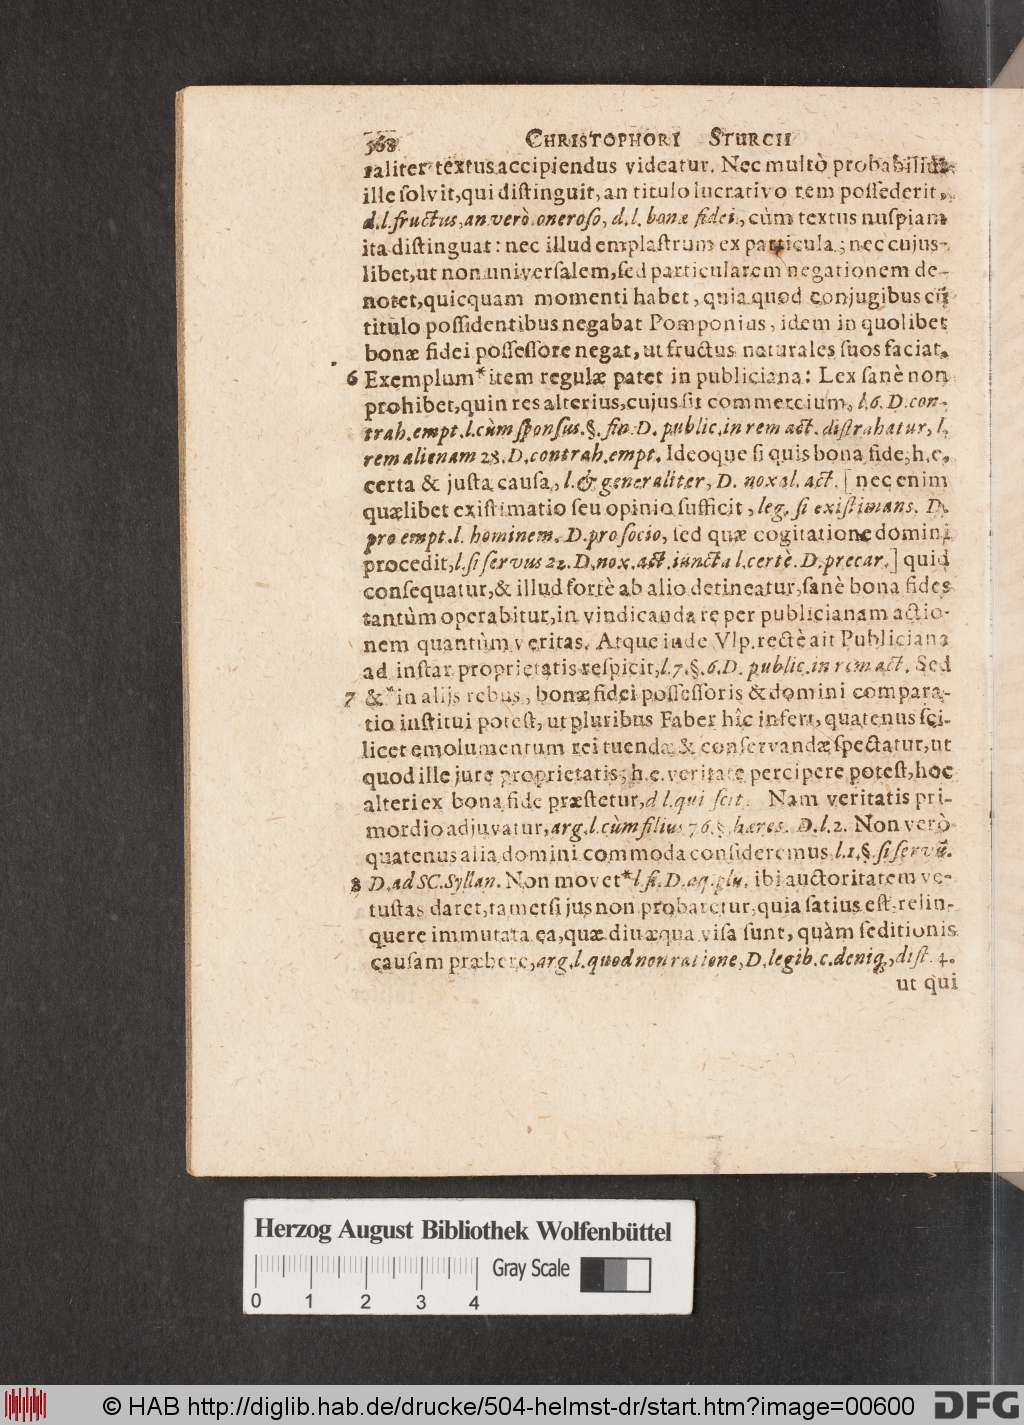 368 CHRISTOPHORI STURCII
raliter textus accipiendus videatur. Nec multò probabiliùs
ille solvit, qui distinguit, an titulo lucrativo rem possederit,
d.l. fructus, an verò oneroso, d.l. bonæ fidei, cùm textus nuspiam
ita distinguat: nec illud emplastrum ex particula, nec cujus-
libet, ut non universalem, sed particularem negationem de-
notet, quicquam momenti habet, quia quod conjugibus cū
titulo possidentibus negabat Pomponius, idem in quolibet
bonæ fidei possessore negat, ut fructus naturales suos faciat.
6 Exemplum * item regulæ patet in publiciana: Lex sanè non
prohibet, quin res alterius, cujus sit commercium, l.6. D. con-
trah. empt. l. cùm sponsus. §. fin. D. public. in rem act. distrahatur, l.
rem alienam 28. D. contrah. empt. Ideoque si quis bona fide, h.e.
certa & justa causa, l. & generaliter, D. noxal. act. [nec enim
quælibet existimatio seu opinio sufficit, leg. si existimans. D.
pro empt. l. hominem. D. pro socio, sed quæ cogitatione domini
procedit, l. si servus 22. D. nox. act. iuncta l. certè. D. precar.] quid
consequatur, & illud fortè ab alio detineatur, sanè bona fides
tantùm operabitur, in vindicanda re per publicianam actio-
nem quantùm veritas. Atque inde Vlp. rectè ait Publiciana
ad instar proprietatis respicit, l.7. §.6. D. public. in rem act. Sed
7 & * in alijs rebus, bonæ fidei possessoris & domini compara-
tio institui potest, ut pluribus Faber hîc infert, quatenus sci-
licet emolumentum rei tuendæ & conservandæ spectatur, ut
quod ille jure proprietatis, h.e. veritate percipere potest, hoc
alteri ex bona fide præstetur, d l. qui scit. Nam veritatis pri-
mordio adjuvatur, arg. l. cùm filius 76. §. hæres. D.l.2. Non verò
quatenus alia domini commoda consideremus l.1. §. si servū.
8 D. ad SC. Syllan. Non movet * l fi. D. aq. plu. ibi auctoritatem ve-
tustas daret, tametsi jus non probaretur, quia satius est, relin-
quere immutata ea, quæ diu æqua visa sunt, quàm seditionis
causam præbere, arg. l. quod non ratione, D. legib. c. deniq., dist. 4.
ut qui
Herzog August Bibliothek Wolfenbüttel
Gray Scale
0 1 2 3 4
© HAB http://diglib.hab.de/drucke/504-helmst-dr/start.htm?image=00600
DFG